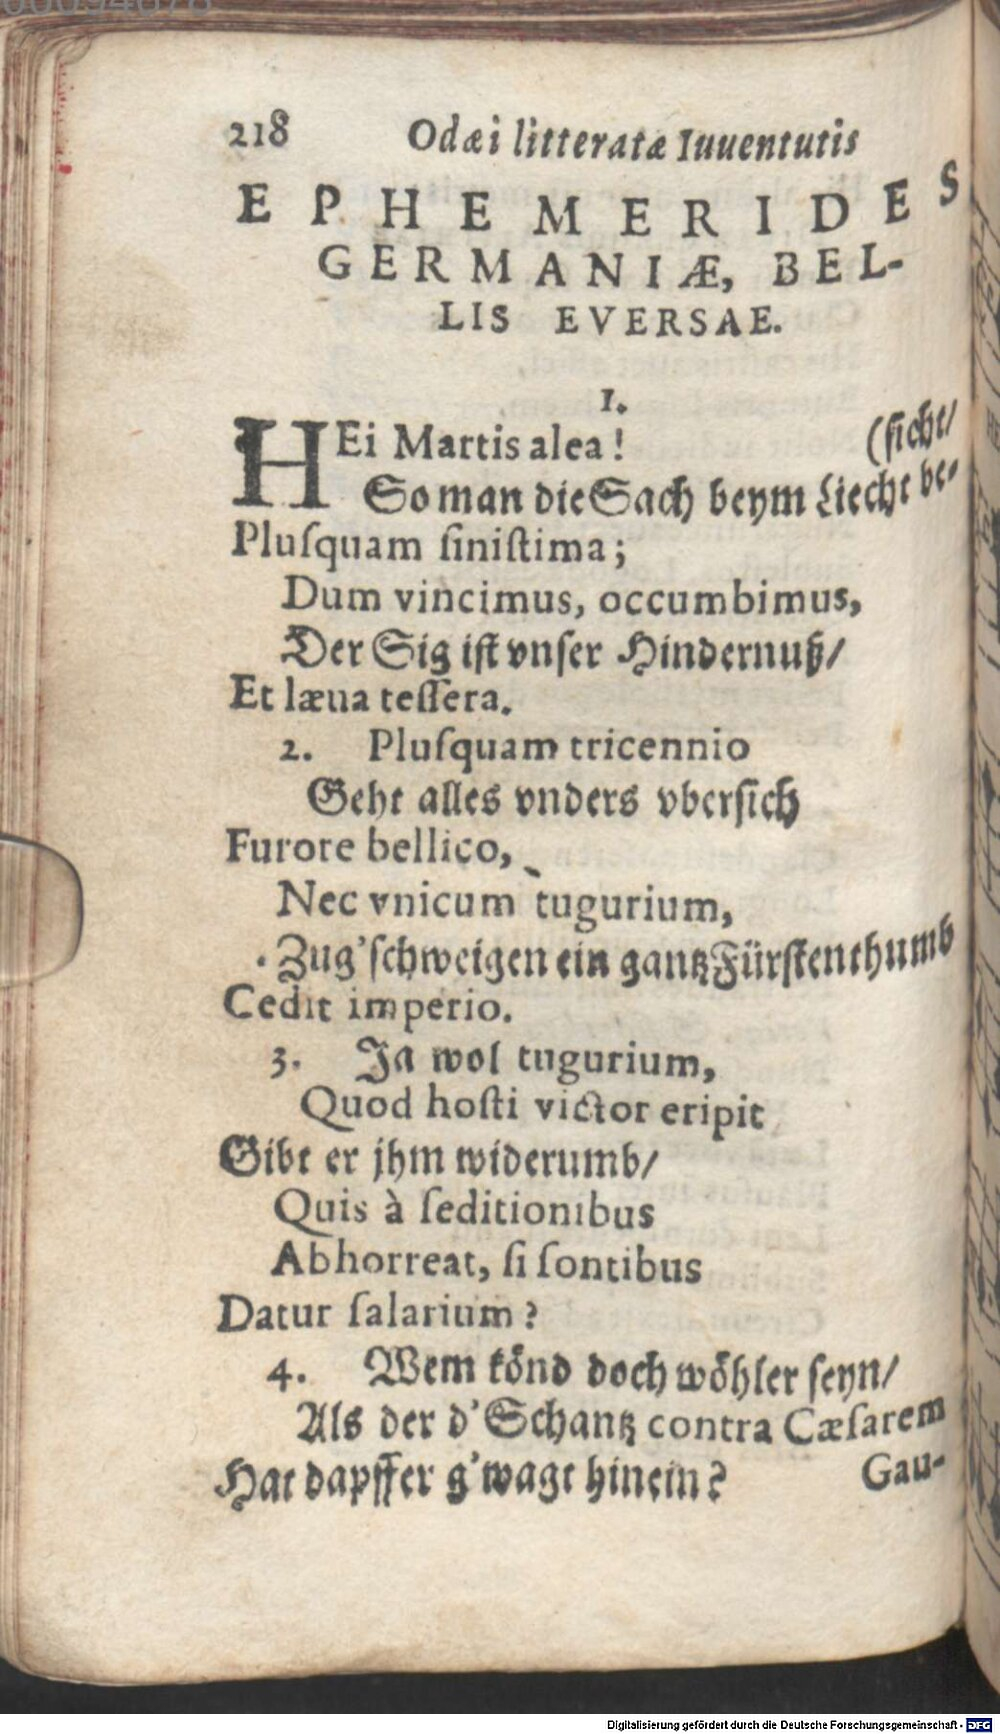 218 Odæi litteratæ Iuuentutis
EPHEMERIDES
GERMANIÆ, BEL-
LIS EVERSAE.
1.
HEi Martis alea! (ſicht/
So man die Sach beym Liecht be-
Pluſquam ſiniſtima;
Dum vincimus, occumbimus,
Der Sig iſt vnſer Hindernuß/
Et læua teſſera.
2. Pluſquam tricennio
Geht alles vnders vberſich
Furore bellico,
Nec vnicum tugurium,
Zug'ſchweigen ein gantz Fürſtenthumb
Cedit imperio.
3. Ja wol tugurium,
Quod hoſti victor eripit
Gibt er jhm widerumb/
Quis à ſeditionibus
Abhorreat, ſi ſontibus
Datur ſalarium?
4. Wem könd doch wöhler ſeyn/
Als der d'Schantz contra Cæſarem
Hat dapffer g'wagt hinein?
Gau-
Digitalisierung gefördert durch die Deutsche Forschungsgemeinschaft - DFG